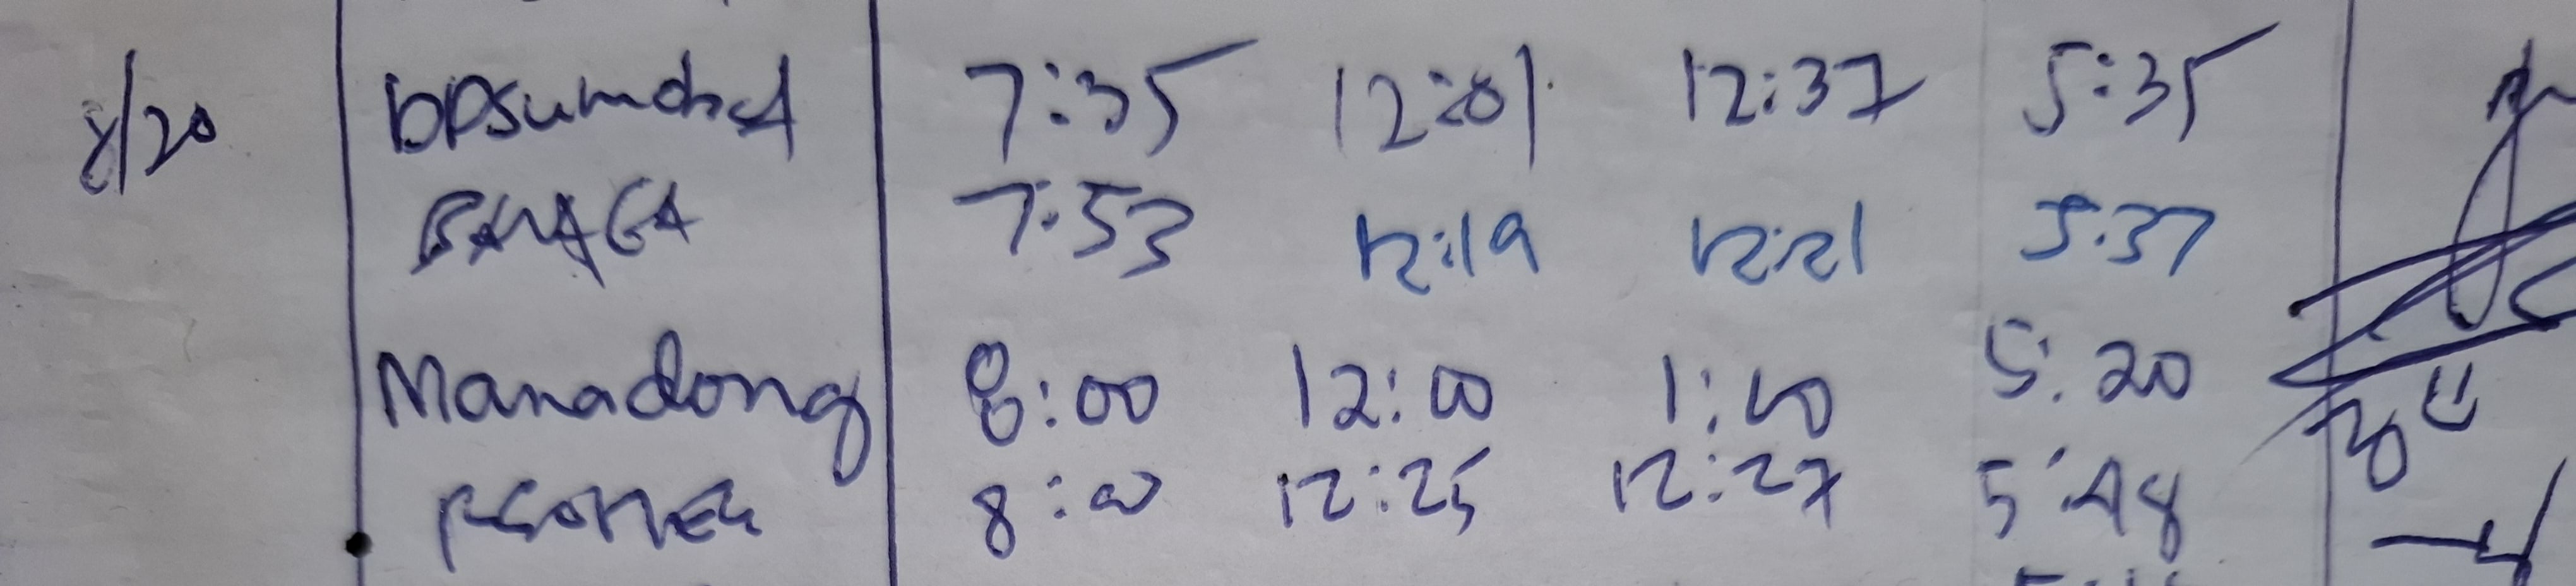 8/20 DPSumdad 7:35 12:01 12:37 5:35
BANAGA 7:53 12:19 12:21 5:37
Manadong 8:00 12:00 1:00 5:20
8:00 12:25 12:27 5:48